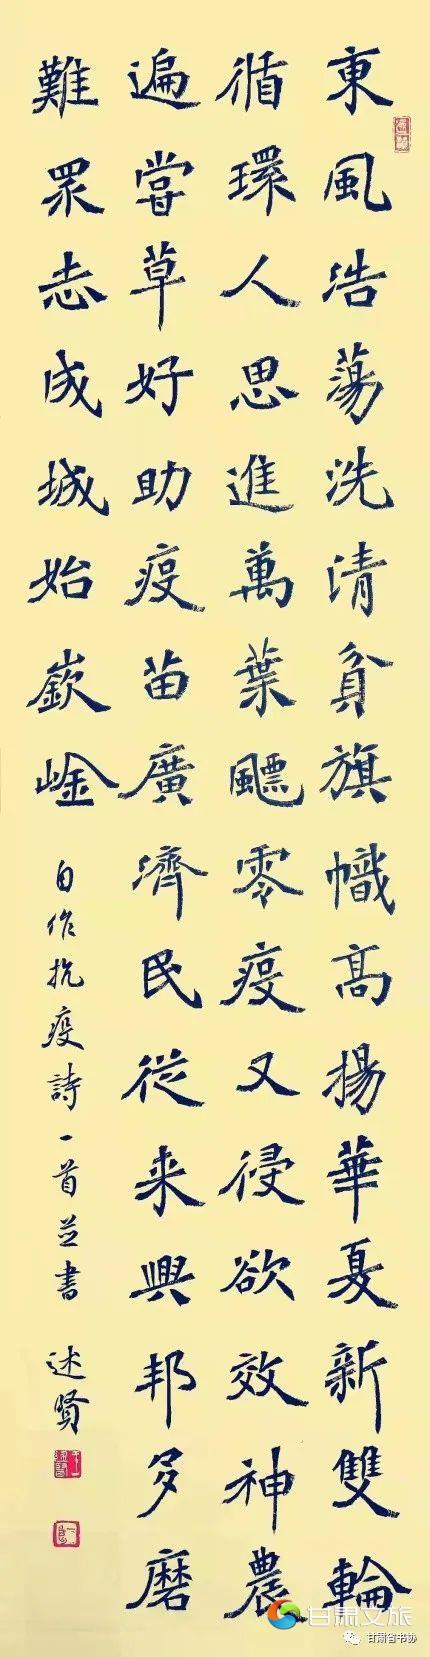 東風浩蕩洗清貧旗幟高揚華夏新雙輪
循環人思進萬葉飃零疫又侵欲效神農
遍嘗草好助疫苗廣濟民從来興邦多磨
難眾志成城始嶔崯
自作抗疫詩一首並書
述贤
甘肃文旅
甘肃省书协